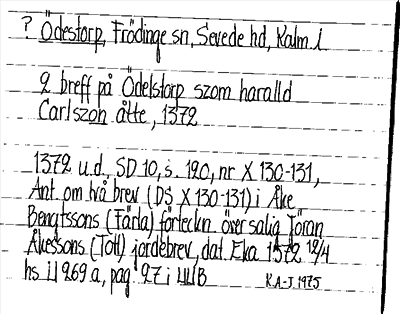 ? Ödestorp, Frödinge sn, Sevede hd, Kalm l
2 breff på Ödelstorp szom haralld
Carlszon åtte, 1372
1372 u.d., SD 10, s. 120, nr X 130-131,
Ant. om två brev (DS X 130-131) i Åke
Bengtssons (Färla) förteckn över salig Jöran
Åkessons (Tott) jordebrev, dat. Eka 1572 12/4
hs L 269 a, pag 27 i UUB
K.A-J. 1975